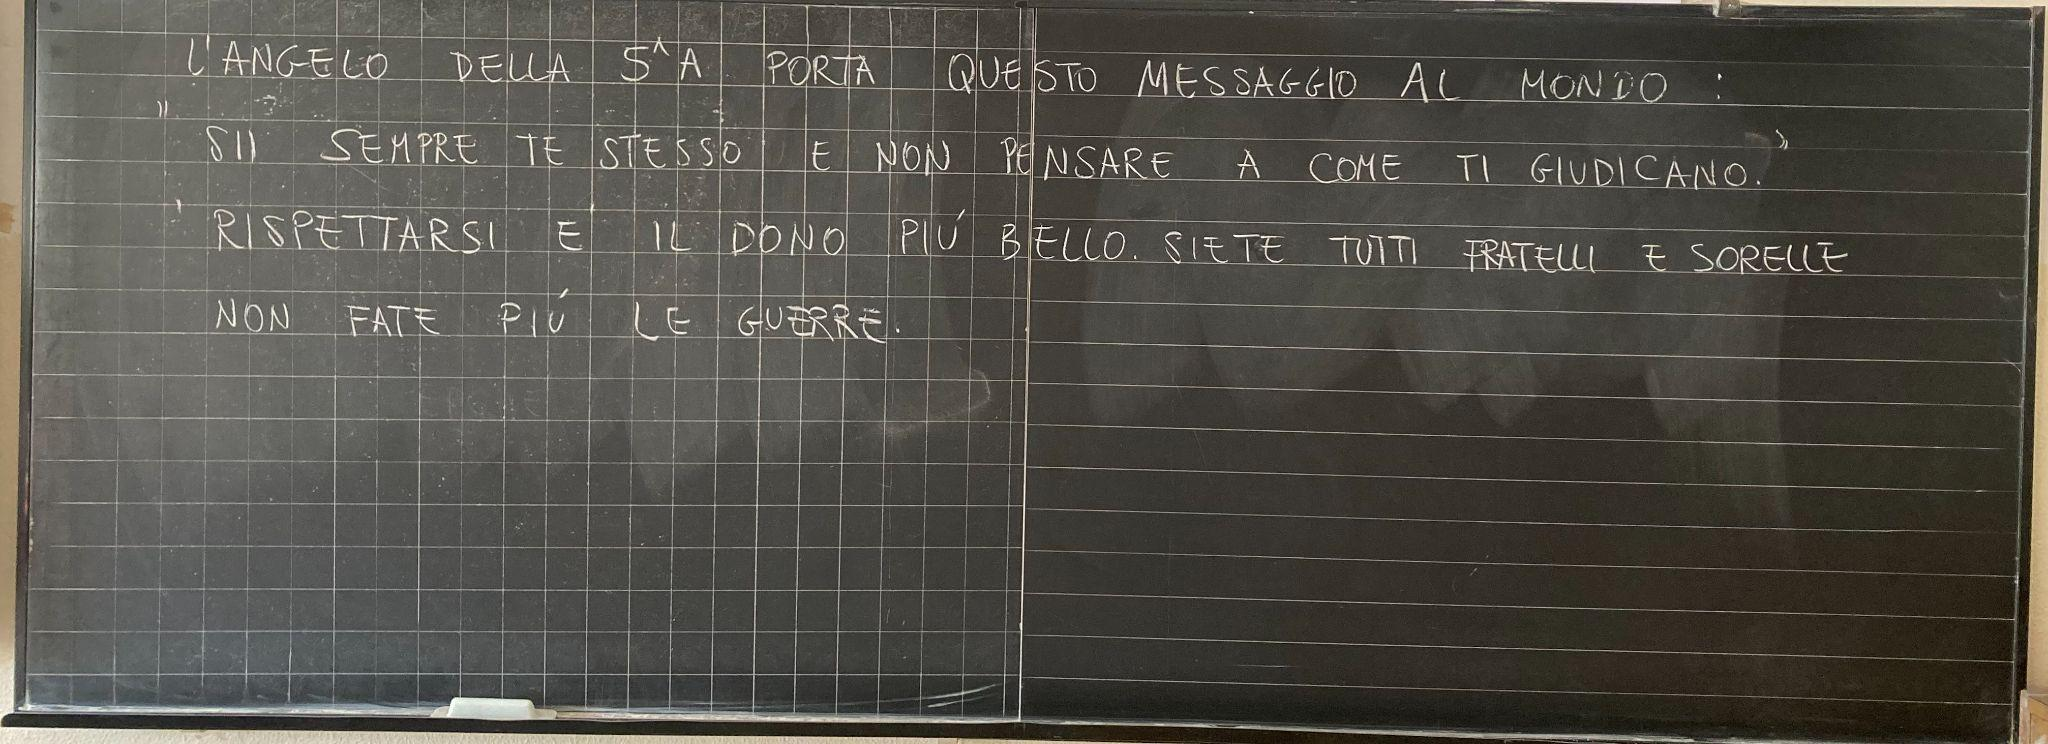 L'ANGELO DELLA 5^A PORTA QUESTO MESSAGGIO AL MONDO :
" SII SEMPRE TE STESSO E NON PENSARE A COME TI GIUDICANO."
' RISPETTARSI E' IL DONO PIÚ BELLO. SIETE TUTTI FRATELLI E SORELLE
NON FATE PIÚ LE GUERRE.